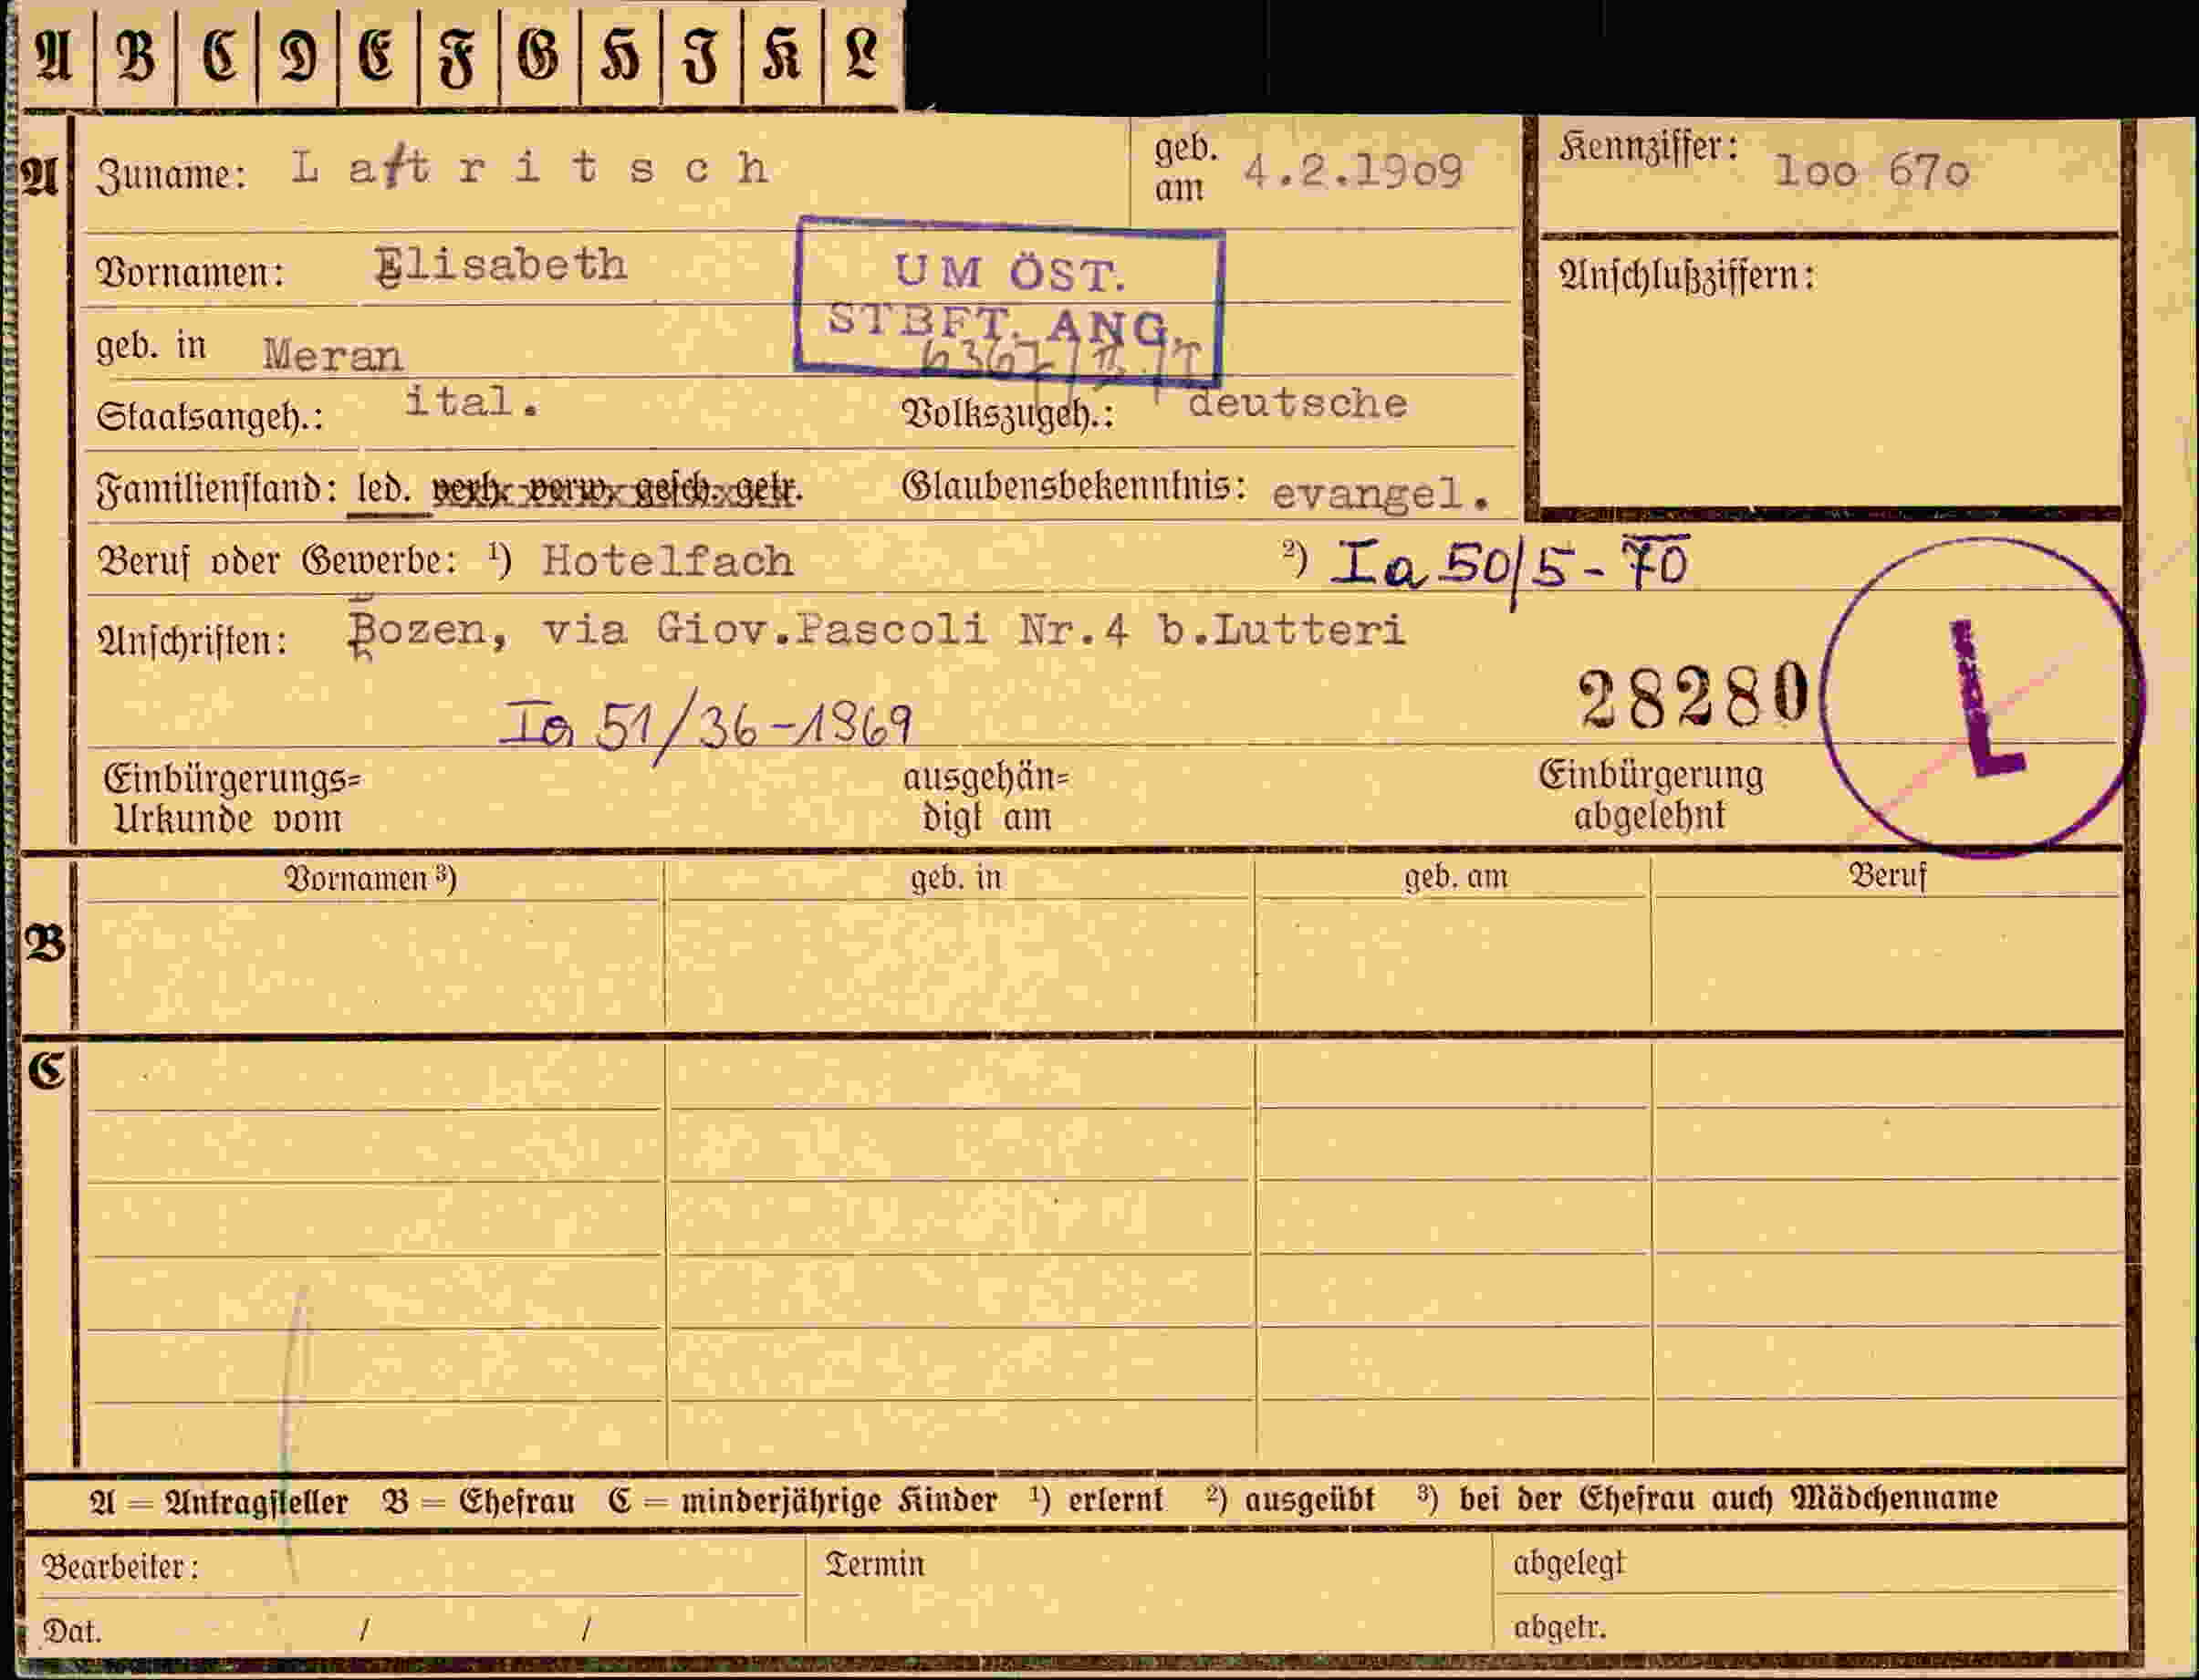 A B C D E F G H I K L
A Zuname: Laftritsch geb. am 4.2.1909 Kennziffer: 100 670
Vornamen: Elisabeth UM ÖST. Anschlußziffern:
STBFT. ANG.
geb. in Meran
Staatsangeh.: ital. Volkszugeh.: deutsche
Familienstand: led. verh. verw. gesch. getr. Glaubensbekenntnis: evangel.
Beruf oder Gewerbe: 1) Hotelfach 2) Ia 50/5-70
Anschriften: Bozen, via Giov.Pascoli Nr.4 b.Lutteri
28280 L
Ia 51/36-1869
Einbürgerungs= ausgehän= Einbürgerung
Urkunde vom digt am abgelehnt
Vornamen 3) geb. in geb. am Beruf
B
C
A = Antragsteller B = Ehefrau C = minderjährige Kinder 1) erlernt 2) ausgeübt 3) bei der Ehefrau auch Mädchenname
Bearbeiter: Termin abgelegt
Dat. / / abgetr.